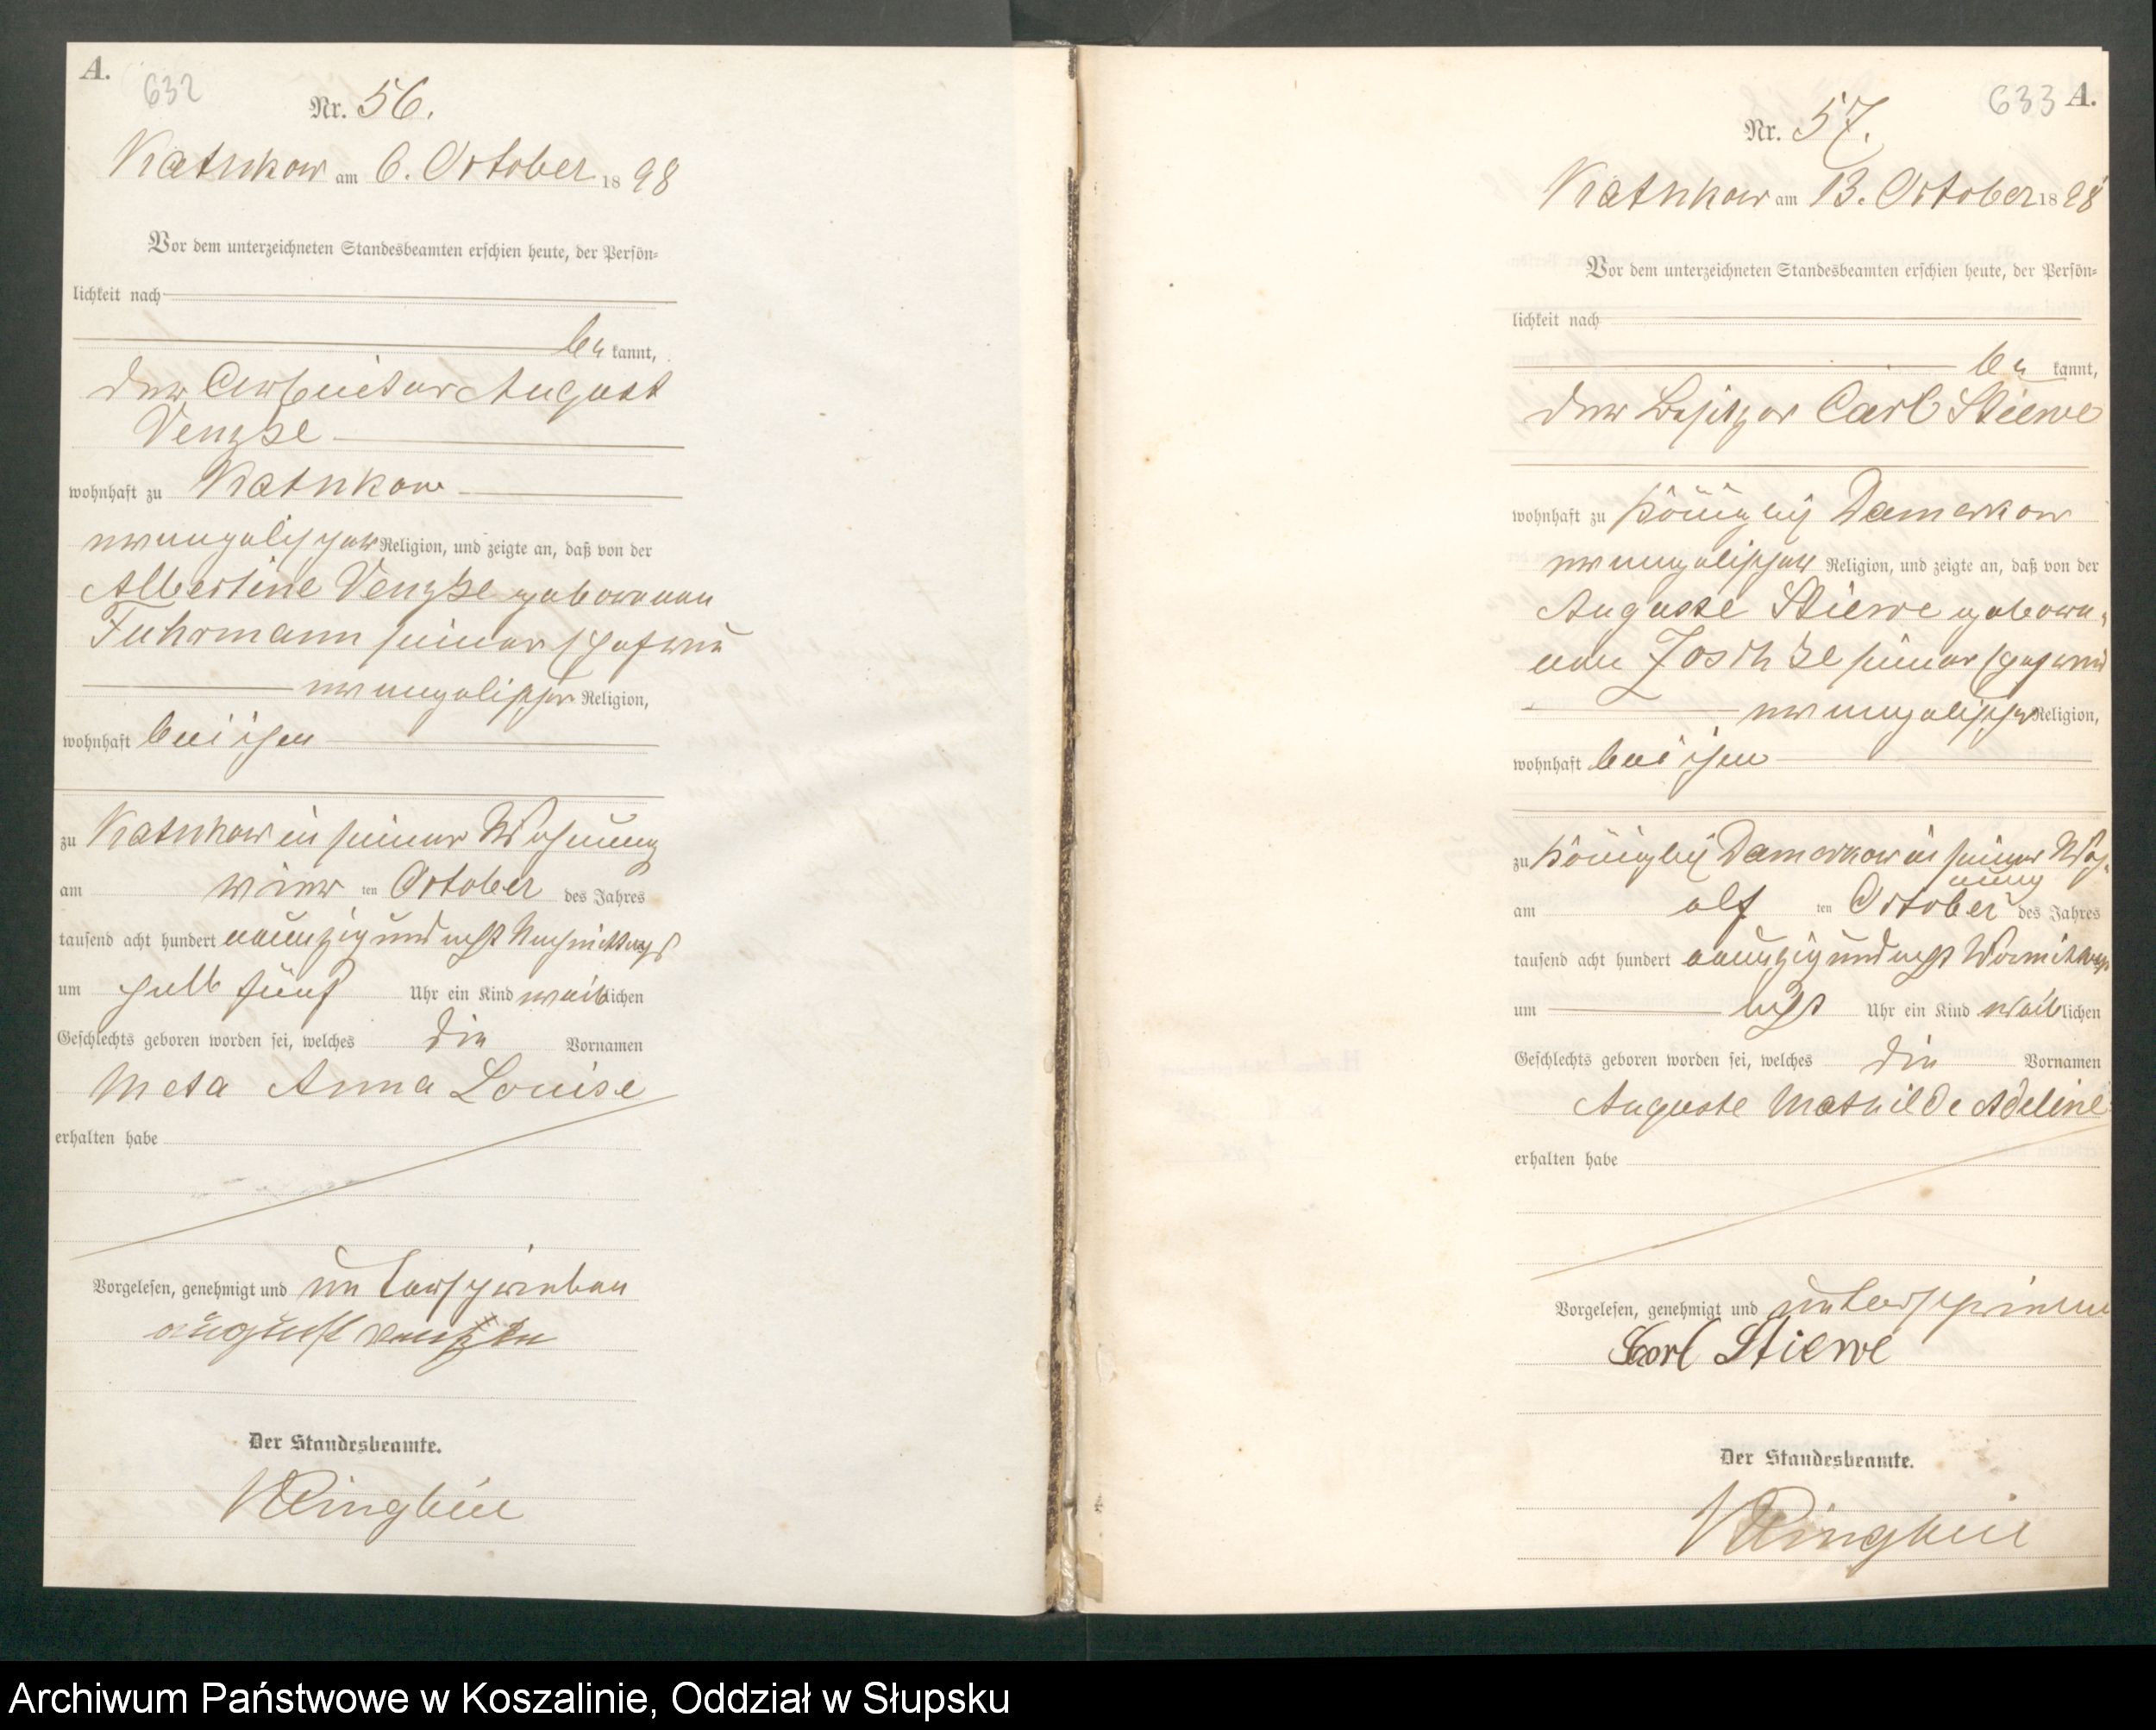 A.
632
Nr. 56.
Katnkow am 6. October 1898
Vor dem unterzeichneten Standesbeamten erschien heute, der Persön-
lichkeit nach
be kannt,
der Arbeiter August
Venzke
wohnhaft zu Katnkow
evangelischer Religion, und zeigte an, daß von der
Albertine Venzke geborenen
Fuhrmann seiner Ehefrau
evangelischer Religion,
wohnhaft bei ihm
zu Katnkow in seiner Wohnung
am vier ten October des Jahres
tausend acht hundert neunzig und acht Nachmittags
um halb fünf Uhr ein Kind weiblichen
Geschlechts geboren worden sei, welches die Vornamen
Meta Anna Louise
erhalten habe
Vorgelesen, genehmigt und unterschrieben
August Venzke
Der Standesbeamte.
633 A.
Nr. 57.
Katnkow am 13. October 1898
Vor dem unterzeichneten Standesbeamten erschien heute, der Persön-
lichkeit nach
be kannt,
der Besitzer Carl Stiewe
wohnhaft zu Königlich Damerkow
evangelischer Religion, und zeigte an, daß von der
Auguste Stiewe gebore-
nen Joschke seiner Ehefrau
evangelischer Religion,
wohnhaft bei ihm
zu Königlich Damerkow in seiner Woh-
nung
am elf ten October des Jahres
tausend acht hundert neunzig und acht Vormittags
um acht Uhr ein Kind weiblichen
Geschlechts geboren worden sei, welches die Vornamen
Auguste Mathilde Adeline
erhalten habe
Vorgelesen, genehmigt und unterschrieben
Carl Stiewe
Der Standesbeamte.
Archiwum Państwowe w Koszalinie, Oddział w Słupsku